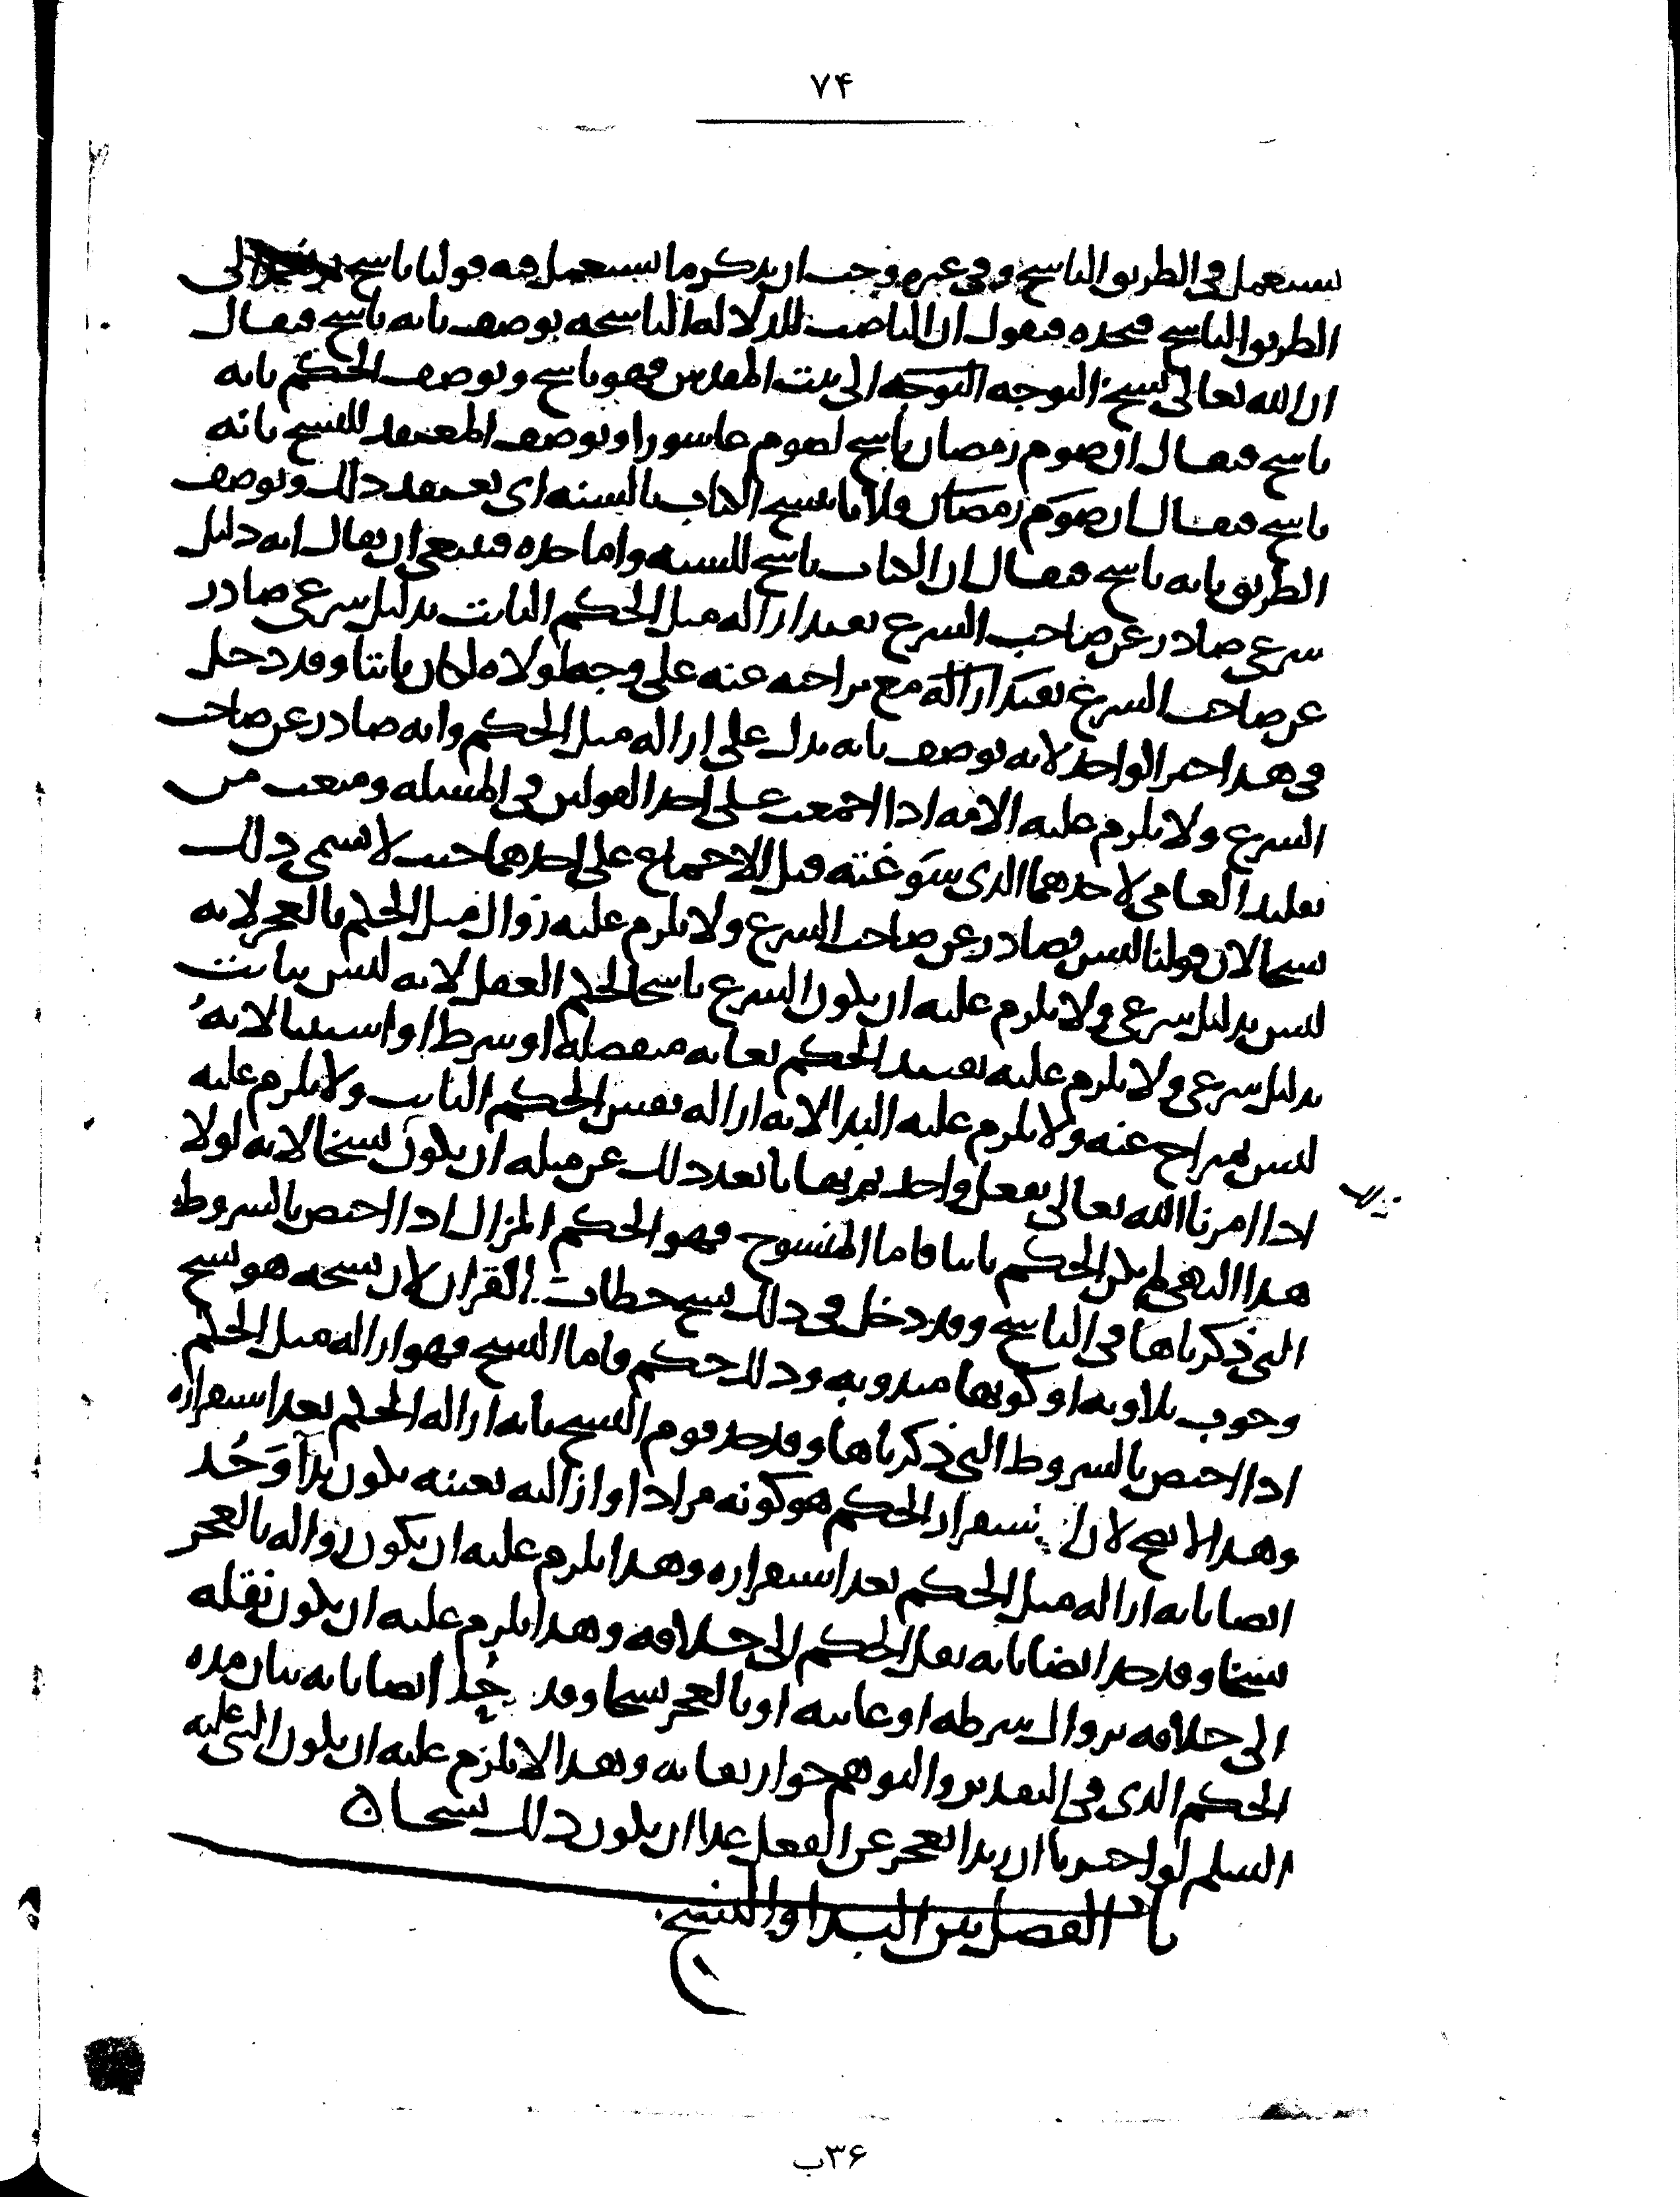 ۷۴
يستعمل في الطريق الناسخ وفي غيره وجب ان يذكر ما يستعمل فيه قولنا ناسخ الى
الطريق الناسخ فنحده فنقول ان الناصب للدلالة الناسخة يوصف بانه ناسخ فيقال
ان الله تعالى نسخ التوجه التوجه الى بيت المقدس فهو ناسخ ويوصف الحكم بانه
ناسخ فيقال ان صوم رمضان ناسخ لصوم عاشورا ويوصف المعتقد للنسخ بانه
ناسخ فيقال ان صوم رمضان فلان ينسخ الكتاب بالسنة اي يعتقد ذلك ويوصف
الطريق بانه ناسخ فيقال ان الكتاب ناسخ للسنة واما حده فينبغي ان يقال انه دليل
شرعي صادر عن صاحب الشرع يفيد ازالة مثل الحكم الثابت بدليل شرعي صادر
عن صاحب الشرع يفيد ازالة مع تراخيه عنه على وجه لولاه لكان ثابتا وقد دخل
في هذا خبر الواحد لانه يوصف بانه يدل على ازالة مثل الحكم وانه صادر عن صاحب
الشرع ولا يلزم عليه الامة اذا اجمعت على احد القولين في المسئلة ومنعت من
تقليد العامي لاحدهما الذي سوغته قبل الاجماع على احدهما حيث لا يسمى ذلك
نسخا لان قولنا ليس بصادر عن صاحب الشرع ولا يلزم عليه زوال مثل الحكم بالعجز لانه
ليس بدليل شرعي ولا يلزم عليه ان يكون الشرع ناسخا لحكم العقل لانه ليس بثابت
بدليل شرعي ولا يلزم عليه تقييد الحكم بغاية متصلة او شرط او استثنا لانه
ليس بمتراخ عنه ولا يلزم عليه البدا لانه ازالة نفس الحكم الثابت ولا يلزم عليه
اذا امرنا الله تعالى بفعل واحد ثم نهانا بعد ذلك عن مثله ان يكون نسخا لانه لولا
هذا النهي لم يكن الحكم ثابتا فاما المنسوخ فهو الحكم المزال اذا اختص بالشروط
التي ذكرناها في الناسخ وقد دخل في ذلك نسخ خطاب القران لان نسخه هو نسخ
وجوب تلاوته او كونها مندوبة وذلك حكم فاما النسخ فهو ازالة مثل الحكم
اذا اختص بالشروط التي ذكرناها وقد حد قوم النسخ بانه ازالة الحكم بعد استقراره
وهذا لا يصح لان استقرار الحكم هو كونه مرادا وازالته بعينه يكون بدا وحد
ايضا بانه ازالة مثل الحكم بعد استقراره وهذا يلزم عليه ان يكون زواله بالعجز
نسخا وقد حد ايضا بانه نقل الحكم الى خلافه وهذا يلزم عليه ان يكون نقله
الى خلافه بزوال شرطه او غايته او بالعجز نسخا وقد حد ايضا بانه بيان مدة
الحكم الذي في التقدير والتوهم جواز بقائه وهذا لا يلزم عليه ان يكون النبي عليه
السلم لو اخبرنا ان زيدا يعجز عن الفعل غدا ان يكون ذلك نسخا ن
باب الفصل بين البدا والنسخ
۳۶ب